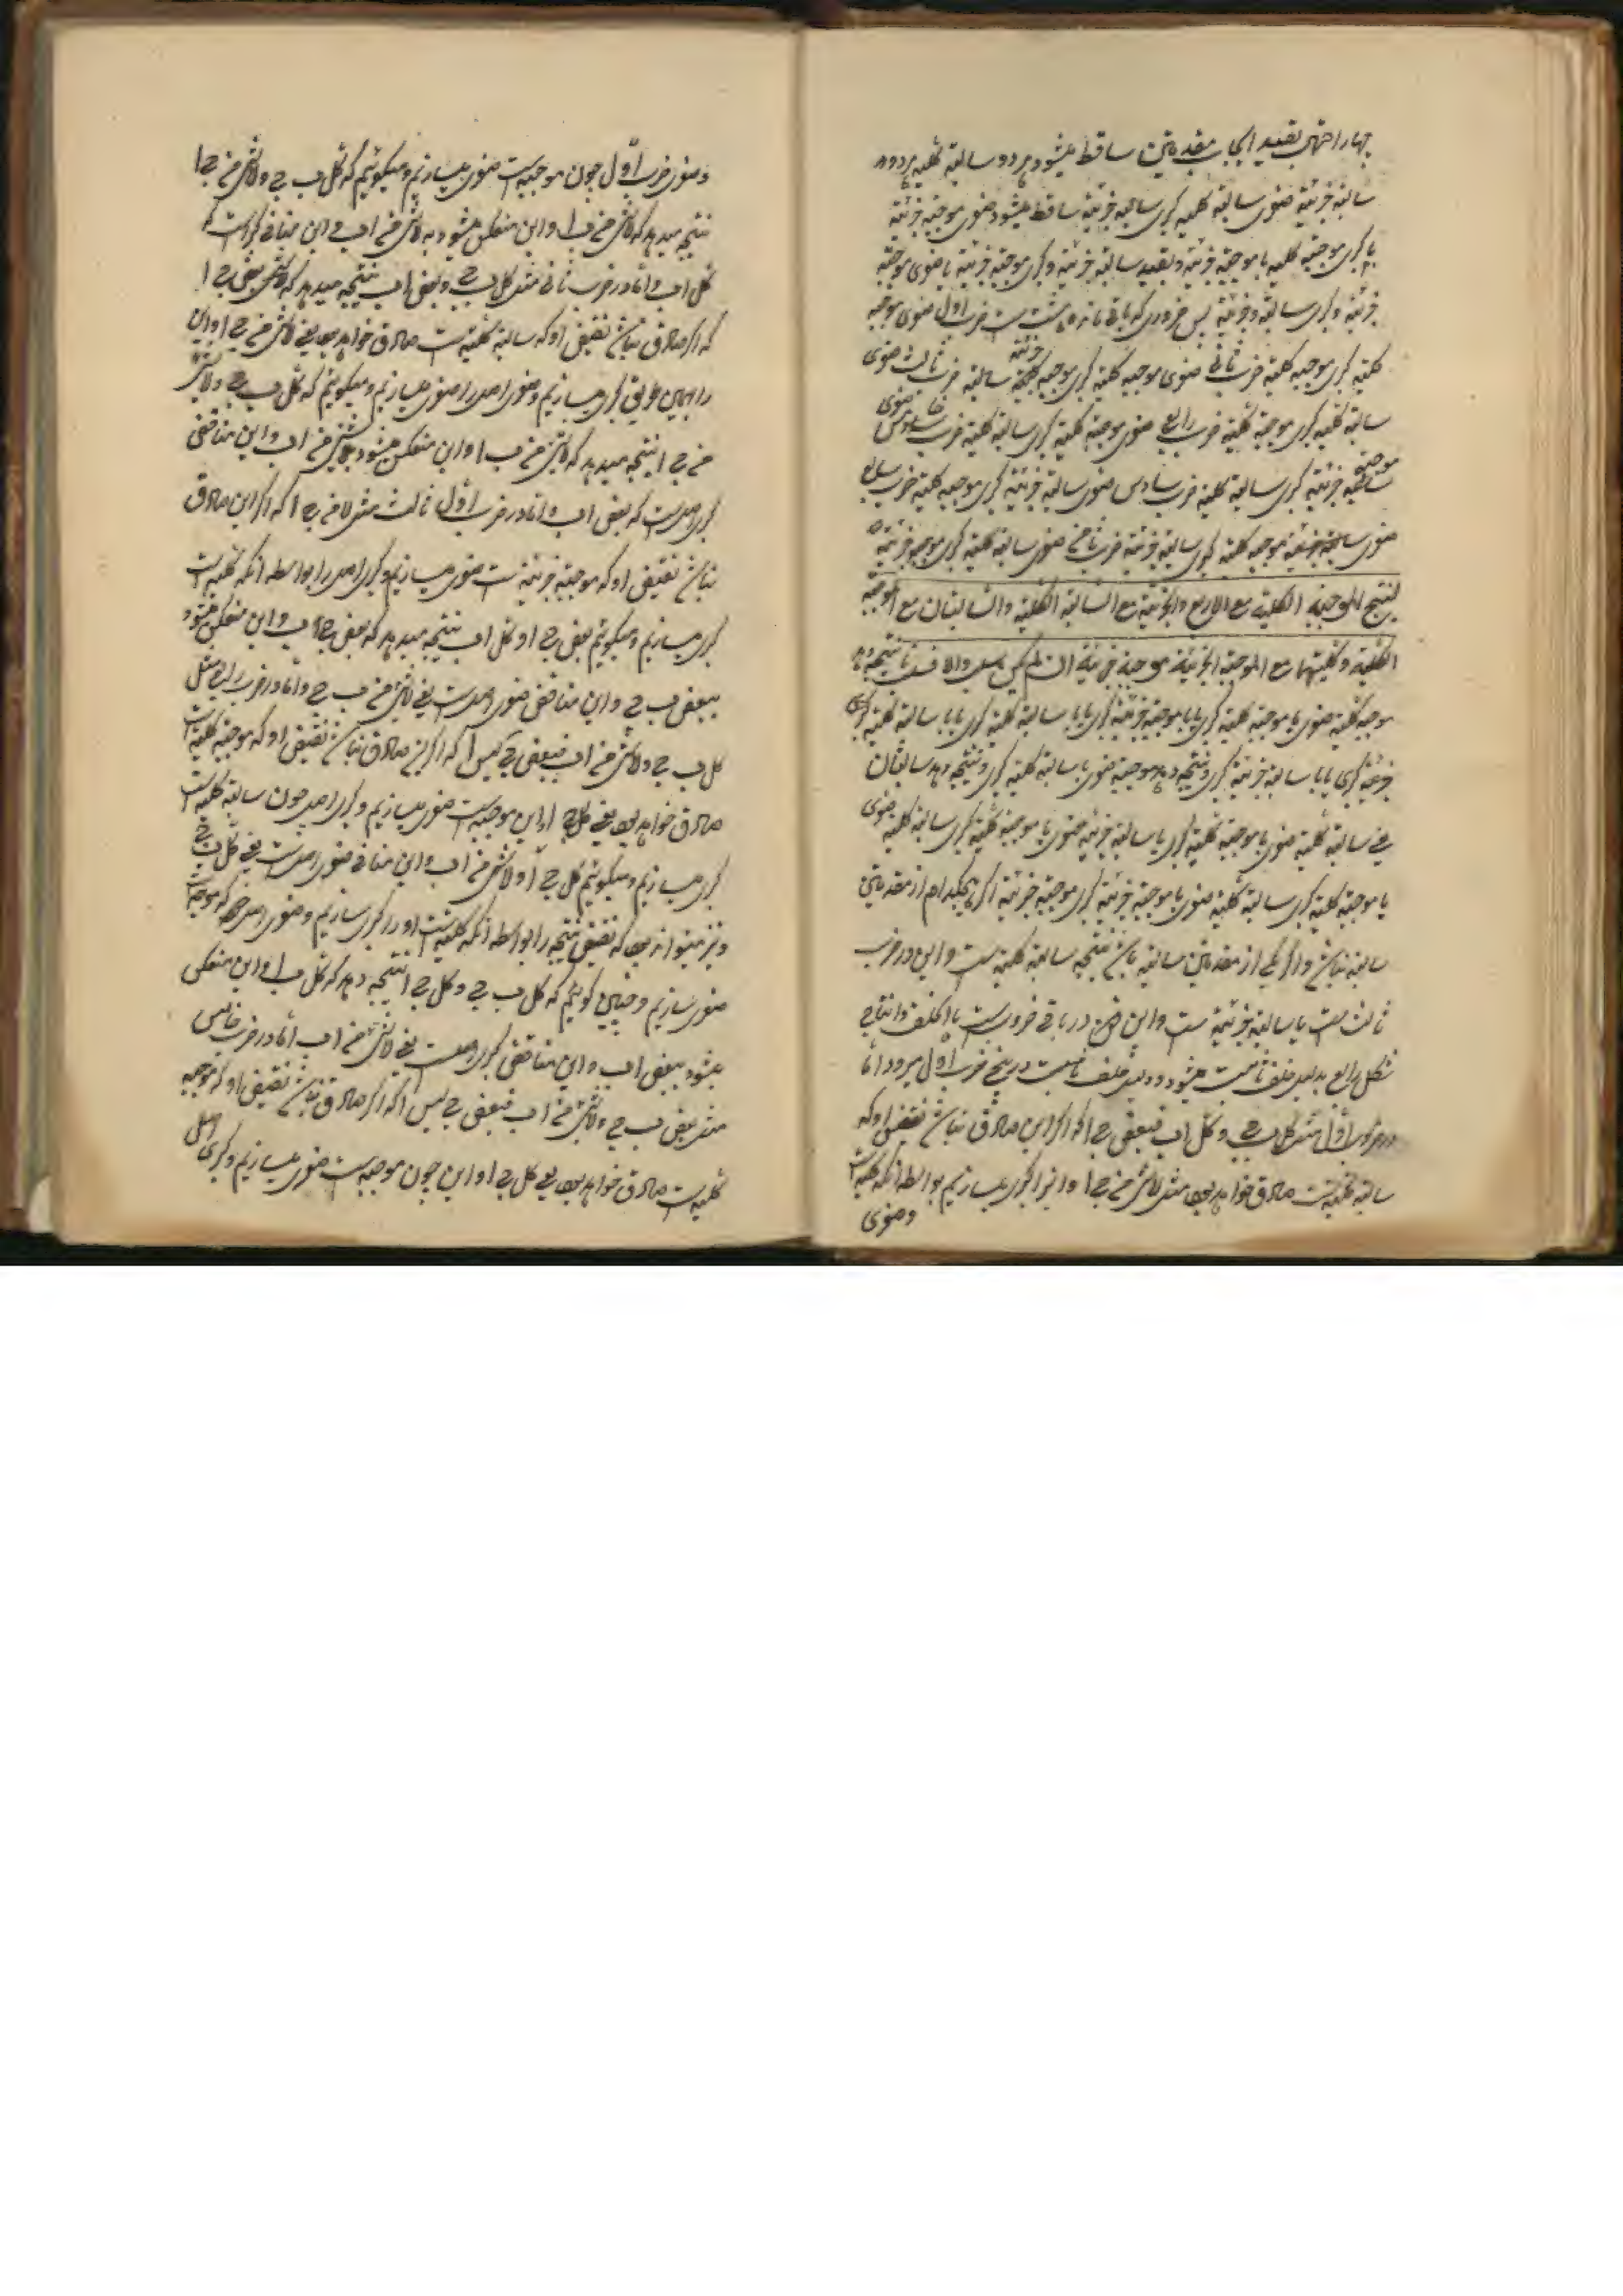 چهار احتمال بقید ایجاب مقدمتین ساقط میشود هر دو سالبه کلیه هر دو
سالبه جزئیه صغری سالبه کلیه کبری سالبه جزئیه ساقط میشود صغری موجبه جزئیه
با کبری موجبه کلیه یا موجبه جزئیه و بقید سالبه جزئیه و کبری موجبه جزئیه یا صغری موجبه
جزئیه و کبری سالبه جزئیه پس ضروری که باقی مانده هشت ست ضرب اول صغری موجبه
کلیه کبری موجبه کلیه ضرب ثانی صغری موجبه کلیه کبری موجبه جزئیه ضرب ثالث صغری
سالبه کلیه کبری موجبه کلیه ضرب رابع صغری موجبه کلیه کبری سالبه کلیه ضرب خامس صغری
موجبه جزئیه کبری سالبه کلیه ضرب سادس صغری سالبه جزئیه کبری موجبه کلیه ضرب سابع
صغری موجبه کلیه کبری سالبه جزئیه ضرب ثامن صغری سالبه کلیه کبری موجبه جزئیه
لینتج الموجبة الکلیة مع الاربع والجزئیة مع السالبة الکلیة والسالبتان مع الموجبة
الکلیة وکلیتها مع الموجبة الجزئیة موجبة جزئیة ان لم یکن بسلب والا فسالبة نتیجه دهد
موجبه کلیه صغری با موجبه کلیه کبری یا با موجبه جزئیه کبری یا با سالبه کلیه کبری یا با سالبه
جزئیه کبری و نتیجه دهد موجبه جزئیه صغری با سالبه کلیه کبری و نتیجه دهد سالبتان
یعنی سالبه کلیه صغری با موجبه کلیه کبری یا سالبه جزئیه صغری با موجبه کلیه کبری سالبه کلیه صغری
با موجبه کلیه کبری سالبه کلیه صغری با موجبه جزئیه کبری موجبه جزئیه اگر هیچکدام از مقدمتین
سالبه نباشد و اگر یکی از مقدمتین سالبه باشد نتیجه سالبه کلیه ست و این در ضرب
ثالث ست یا سالبه جزئیه ست و این در باقی ضروب ست بالخلف و انتاج
شکل رابع بدلیل خلف ثابت میشود و دلیل خلف نسبت در پنج ضرب اول میرود اما
در ضرب اول مثل کل ب ج و کل ا ب فبعض ج ا که اگر این صادق نباشد نقیض او که
سالبه کلیه ست صادق خواهد بود مثل لا شی من ج ا و این را کبری میسازیم بواسطه آنکه کلیه است
وصغری
و صغری ضرب اول چون موجبه ست صغری میسازیم و میگوئیم که کل ب ج و لا شی من ج ا
نتیجه میدهد که لا شی من ب ا و این منعکس میشود به لا شی من ا ب و این منافی کبری است که
کل ا ب و اما در ضرب ثانی مثل کل ب ج و بعض ا ب نتیجه میدهد که بعض ج ا
که اگر صادق نباشد نقیض او که سالبه کلیه ست صادق خواهد بود یعنی لا شی من ج ا و این
را بهمین طریق کبری میسازیم و صغری اصل را صغری میسازیم و میگوئیم که کل ب ج و لا شی
من ج ا نتیجه میدهد که لا شی من ب ا و این منعکس میشود بلا شی من ا ب و این مناقض
کبری اصل ست که بعض ا ب و اما در ضرب ثالث مثل لا من ج ا که اگر این صادق
نباشد نقیض او که موجبه جزئیه ست صغری میسازیم و کبری اصل را بواسطه آنکه کلیه ست
کبری میسازیم و میگوئیم بعض ج ا و کل ا ب نتیجه میدهد که بعض ج ب و این منعکس میشود
ببعض ب ج و این مناقض صغری اصل ست یعنی لا شی من ب ج و اما در ضرب رابع مثل
کل ب ج و لا شی من ا ب فبعض ج لیس ا که اگر این صادق نباشد نقیض او که موجبه کلیه است
صادق خواهد بود یعنی کل ج ا و این موجبه ست صغری میسازیم و کبری اصل چون سالبه کلیه است
کبری میسازیم و میگوئیم کل ج ا و لا شی من ا ب و این منافی صغری اصل ست یعنی کل ب ج
و نیز میتواند بود که نقیض نتیجه را بواسطه آنکه کلیه ست او را کبری سازیم و صغری اصل را که موجبه است
صغری سازیم و چنین گوئیم که کل ب ج و کل ج ا نتیجه دهد که کل ب ا و این منعکس
میشود ببعض ا ب و این مناقض کبری اصل ست یعنی لا شی من ا ب اما در ضرب خامس
مثل بعض ب ج و لا شی من ا ب فبعض ج لیس ا که اگر صادق نباشد نقیض او که موجبه
کلیه ست صادق خواهد بود یعنی کل ج ا و این چون موجبه ست صغری میسازیم و کبری اصل